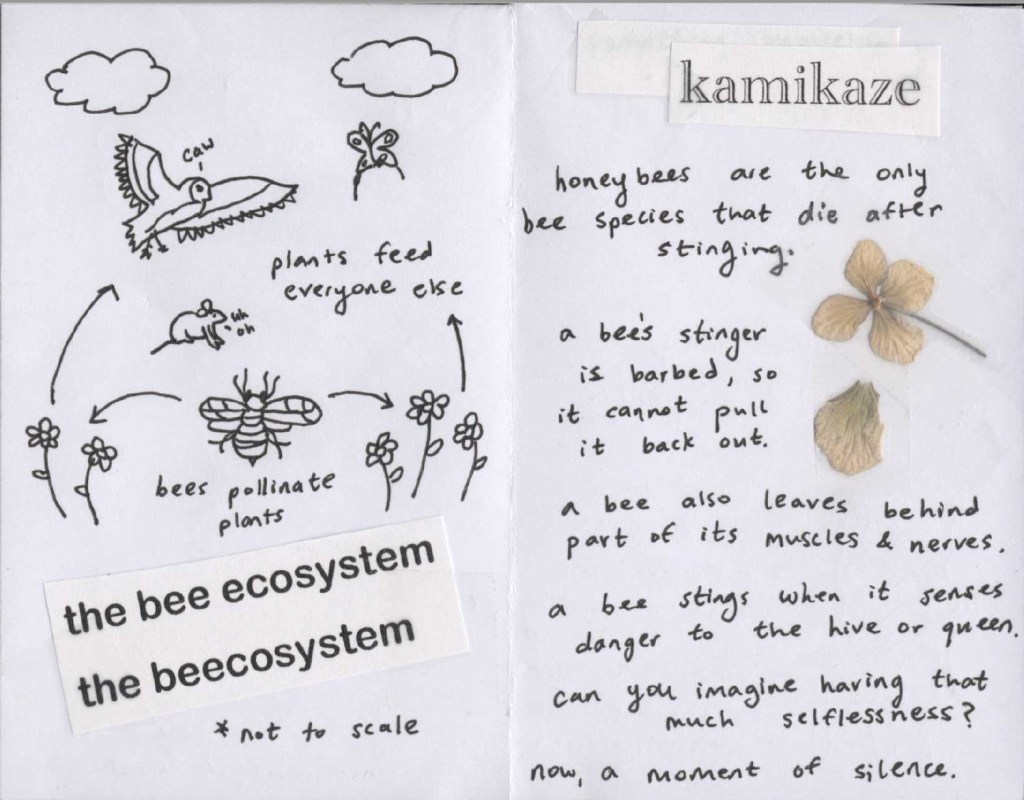 caw
plants feed
everyone else
uh
oh
bees pollinate
plants
the bee ecosystem
the beecosystem
*not to scale
kamikaze
honey bees are the only
bee species that die after
stinging.
a bee's stinger
is barbed, so
it cannot pull
it back out.
a bee also leaves behind
part of its muscles & nerves.
a bee stings when it senses
danger to the hive or queen.
can you imagine having that
much selflessness?
now, a moment of silence.